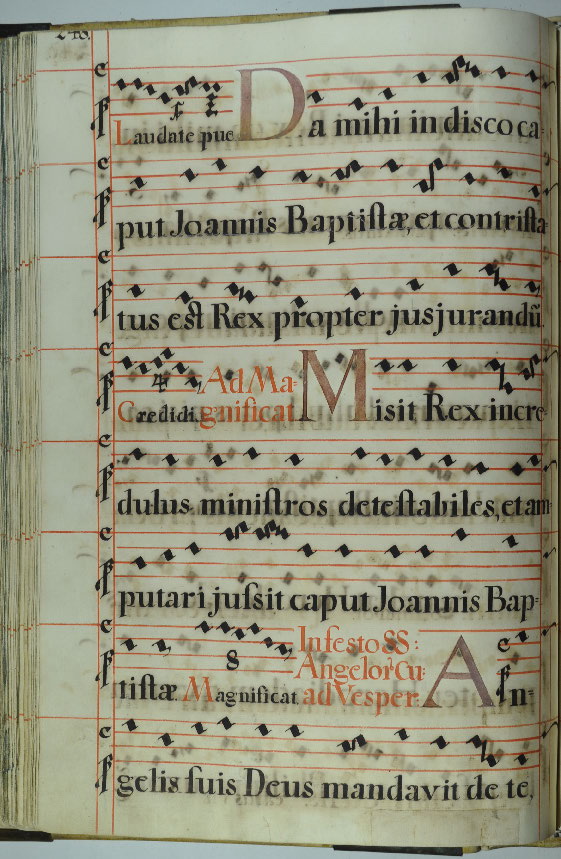 Laudate pue Da mihi in disco ca-
put Joannis Baptiſtæ, et contriſta
tus eſt Rex propter jusjurandũ.
Credidi. Ad Ma-
gnificat Misit Rex incre
dulus miniſtros deteſtabiles, et am
putari juſsit caput Joannis Bap-
tiſtæ. Magnificat 8 In feſto SS:
Angelor: Cu-
ad Vesper: An-
gelis ſuis Deus mandavit de te,